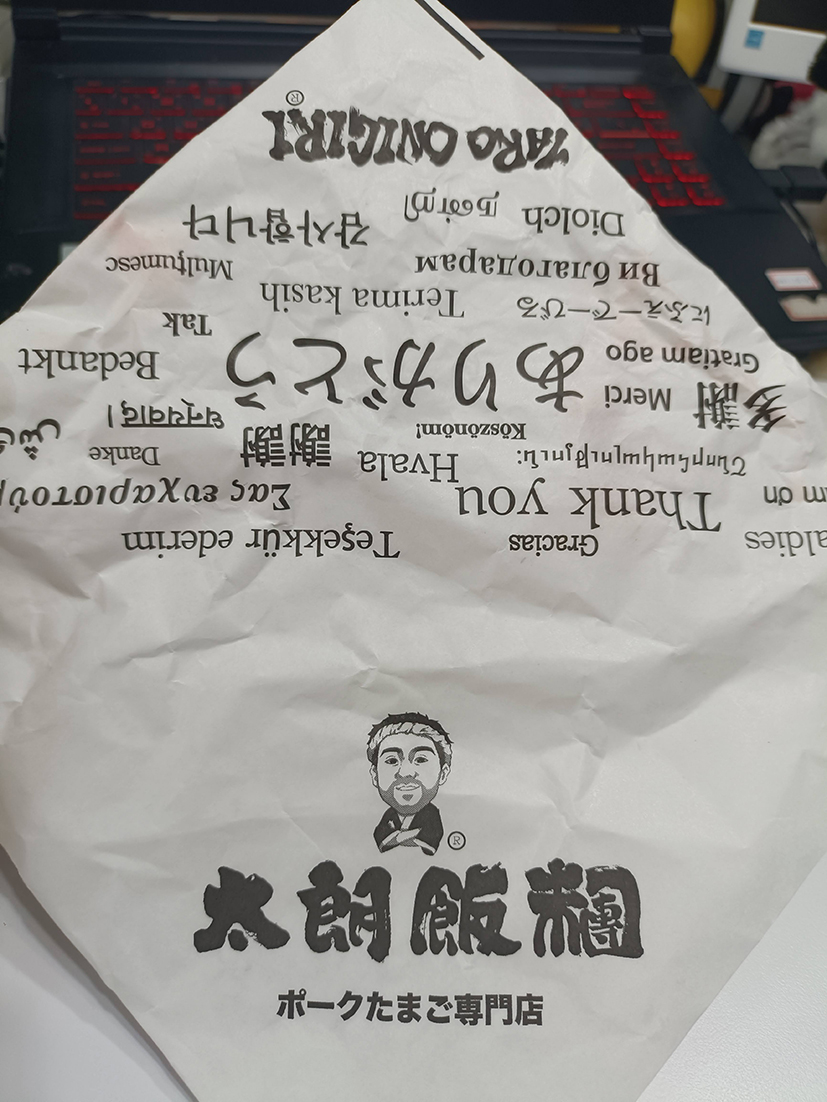 TARO ONIGIRI®
Diolch நன்றி 감사합니다
Ви благодарам Mulțumesc
にふぇーでーびる Terima kasih Tak
Gratiam ago ありがとう Bedankt
多謝 Merci धन्यवाद।
Köszönöm! 謝謝 Danke
Շնորհակալություն: Hvala
Thank you Σας ευχαριστού
aldies Gracias Teşekkür ederim
®
太朗飯糰
ポークたまご専門店